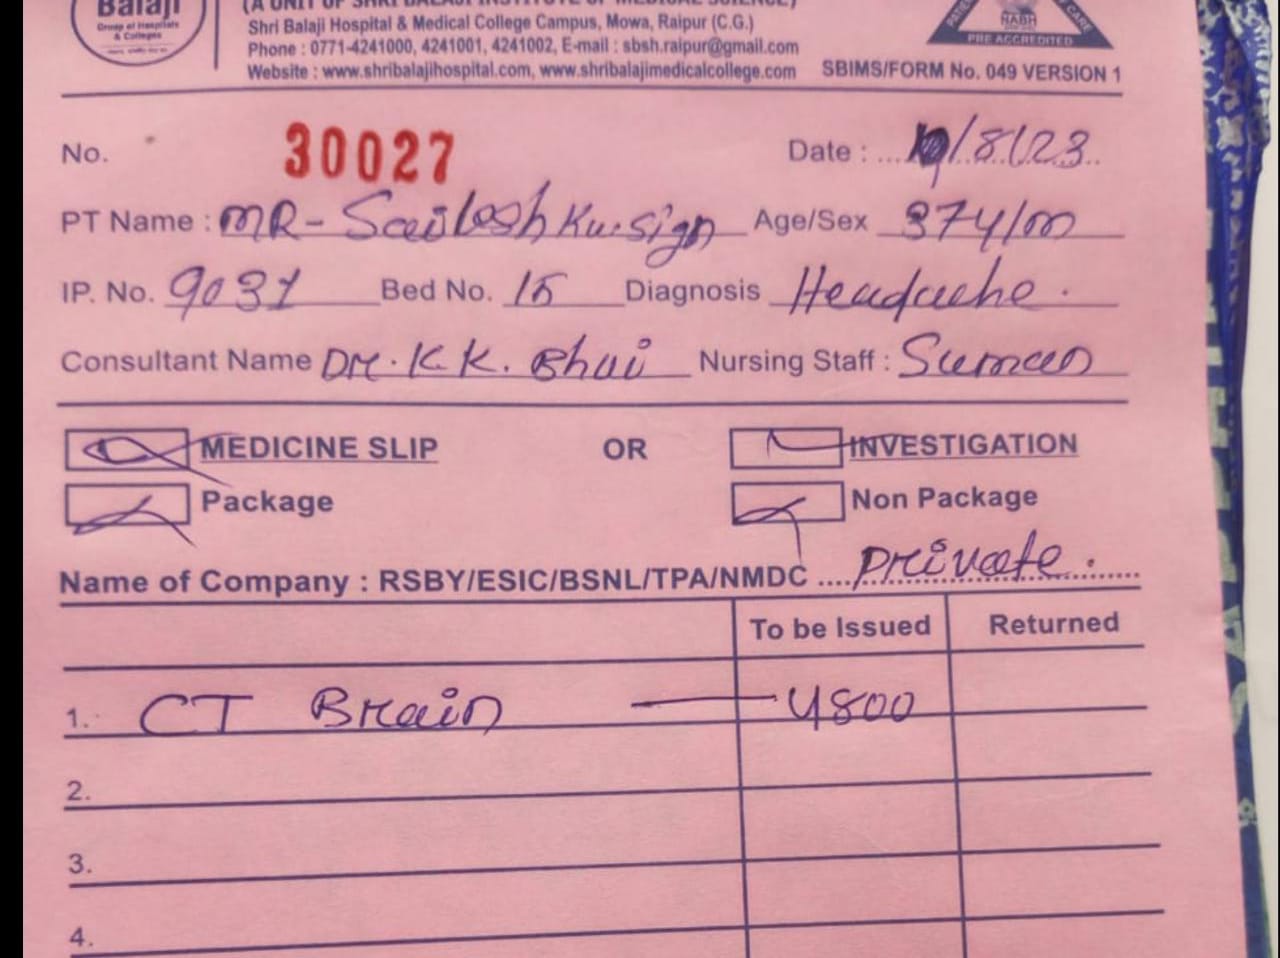 Balaji
Group of Hospitals
& Colleges
(A UNIT OF SHRI BALAJI INSTITUTE OF MEDICAL SCIENCE)
Shri Balaji Hospital & Medical College Campus, Mowa, Raipur (C.G.)
Phone : 0771-4241000, 4241001, 4241002, E-mail : sbsh.raipur@gmail.com
Website : www.shribalajihospital.com, www.shribalajimedicalcollege.com
NABH
PRE ACCREDITED
SBIMS/FORM No. 049 VERSION 1
No. 30027 Date : /8/23
PT Name : MR- Sailesh Ku. Sign Age/Sex 37y/m
IP. No. 9031 Bed No. 15 Diagnosis Headache.
Consultant Name Dr. K.K. Bhui Nursing Staff : Suman
MEDICINE SLIP OR INVESTIGATION
Package Non Package
Name of Company : RSBY/ESIC/BSNL/TPA/NMDC .... Private.
To be Issued Returned
1. CT Brain — 4800
2.
3.
4.